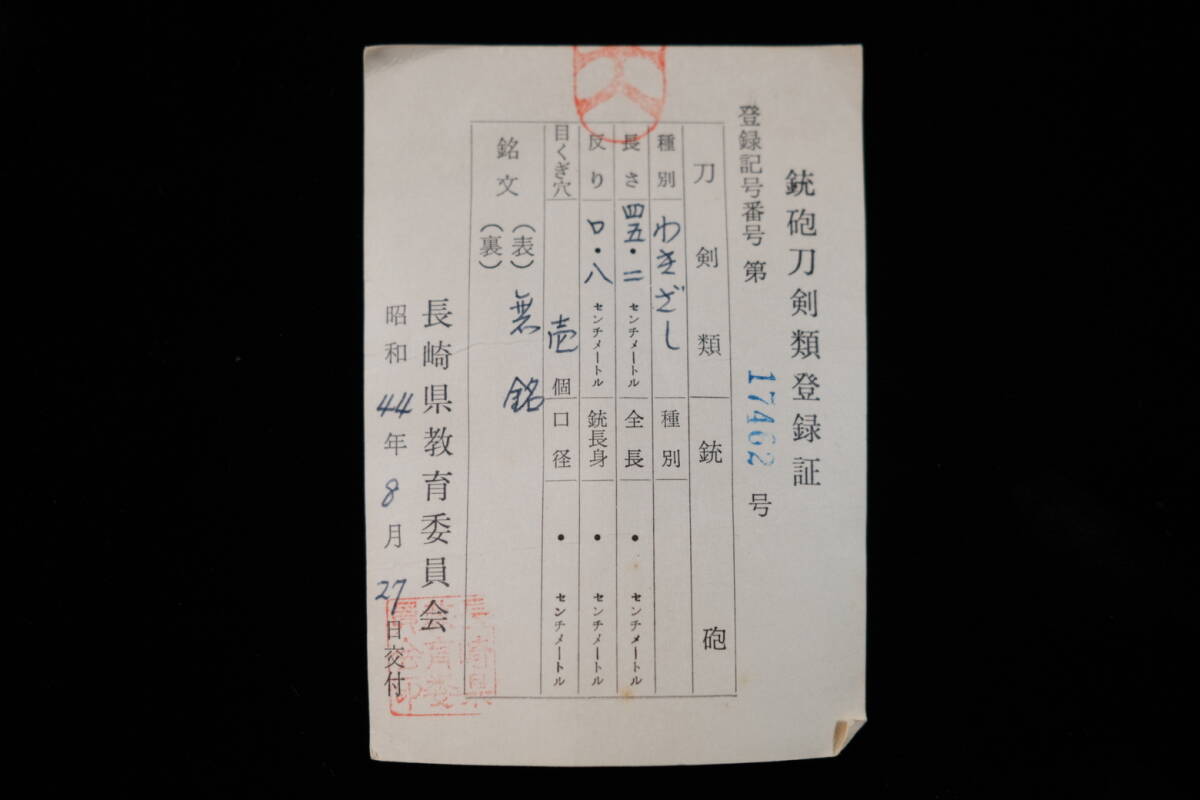 銃砲刀剣類登録証
登録記号番号 第 17462 号
刀剣類
銃砲
種別 わきざし
種別
長さ 四五・二 センチメートル
全長 ・ センチメートル
反り 〇・八 センチメートル
銃身長 ・ センチメートル
目くぎ穴 壱 個
口径 ・ センチメートル
銘文 (表) 無銘
(裏)
長崎県教育委員会
昭和 44 年 8 月 27 日交付